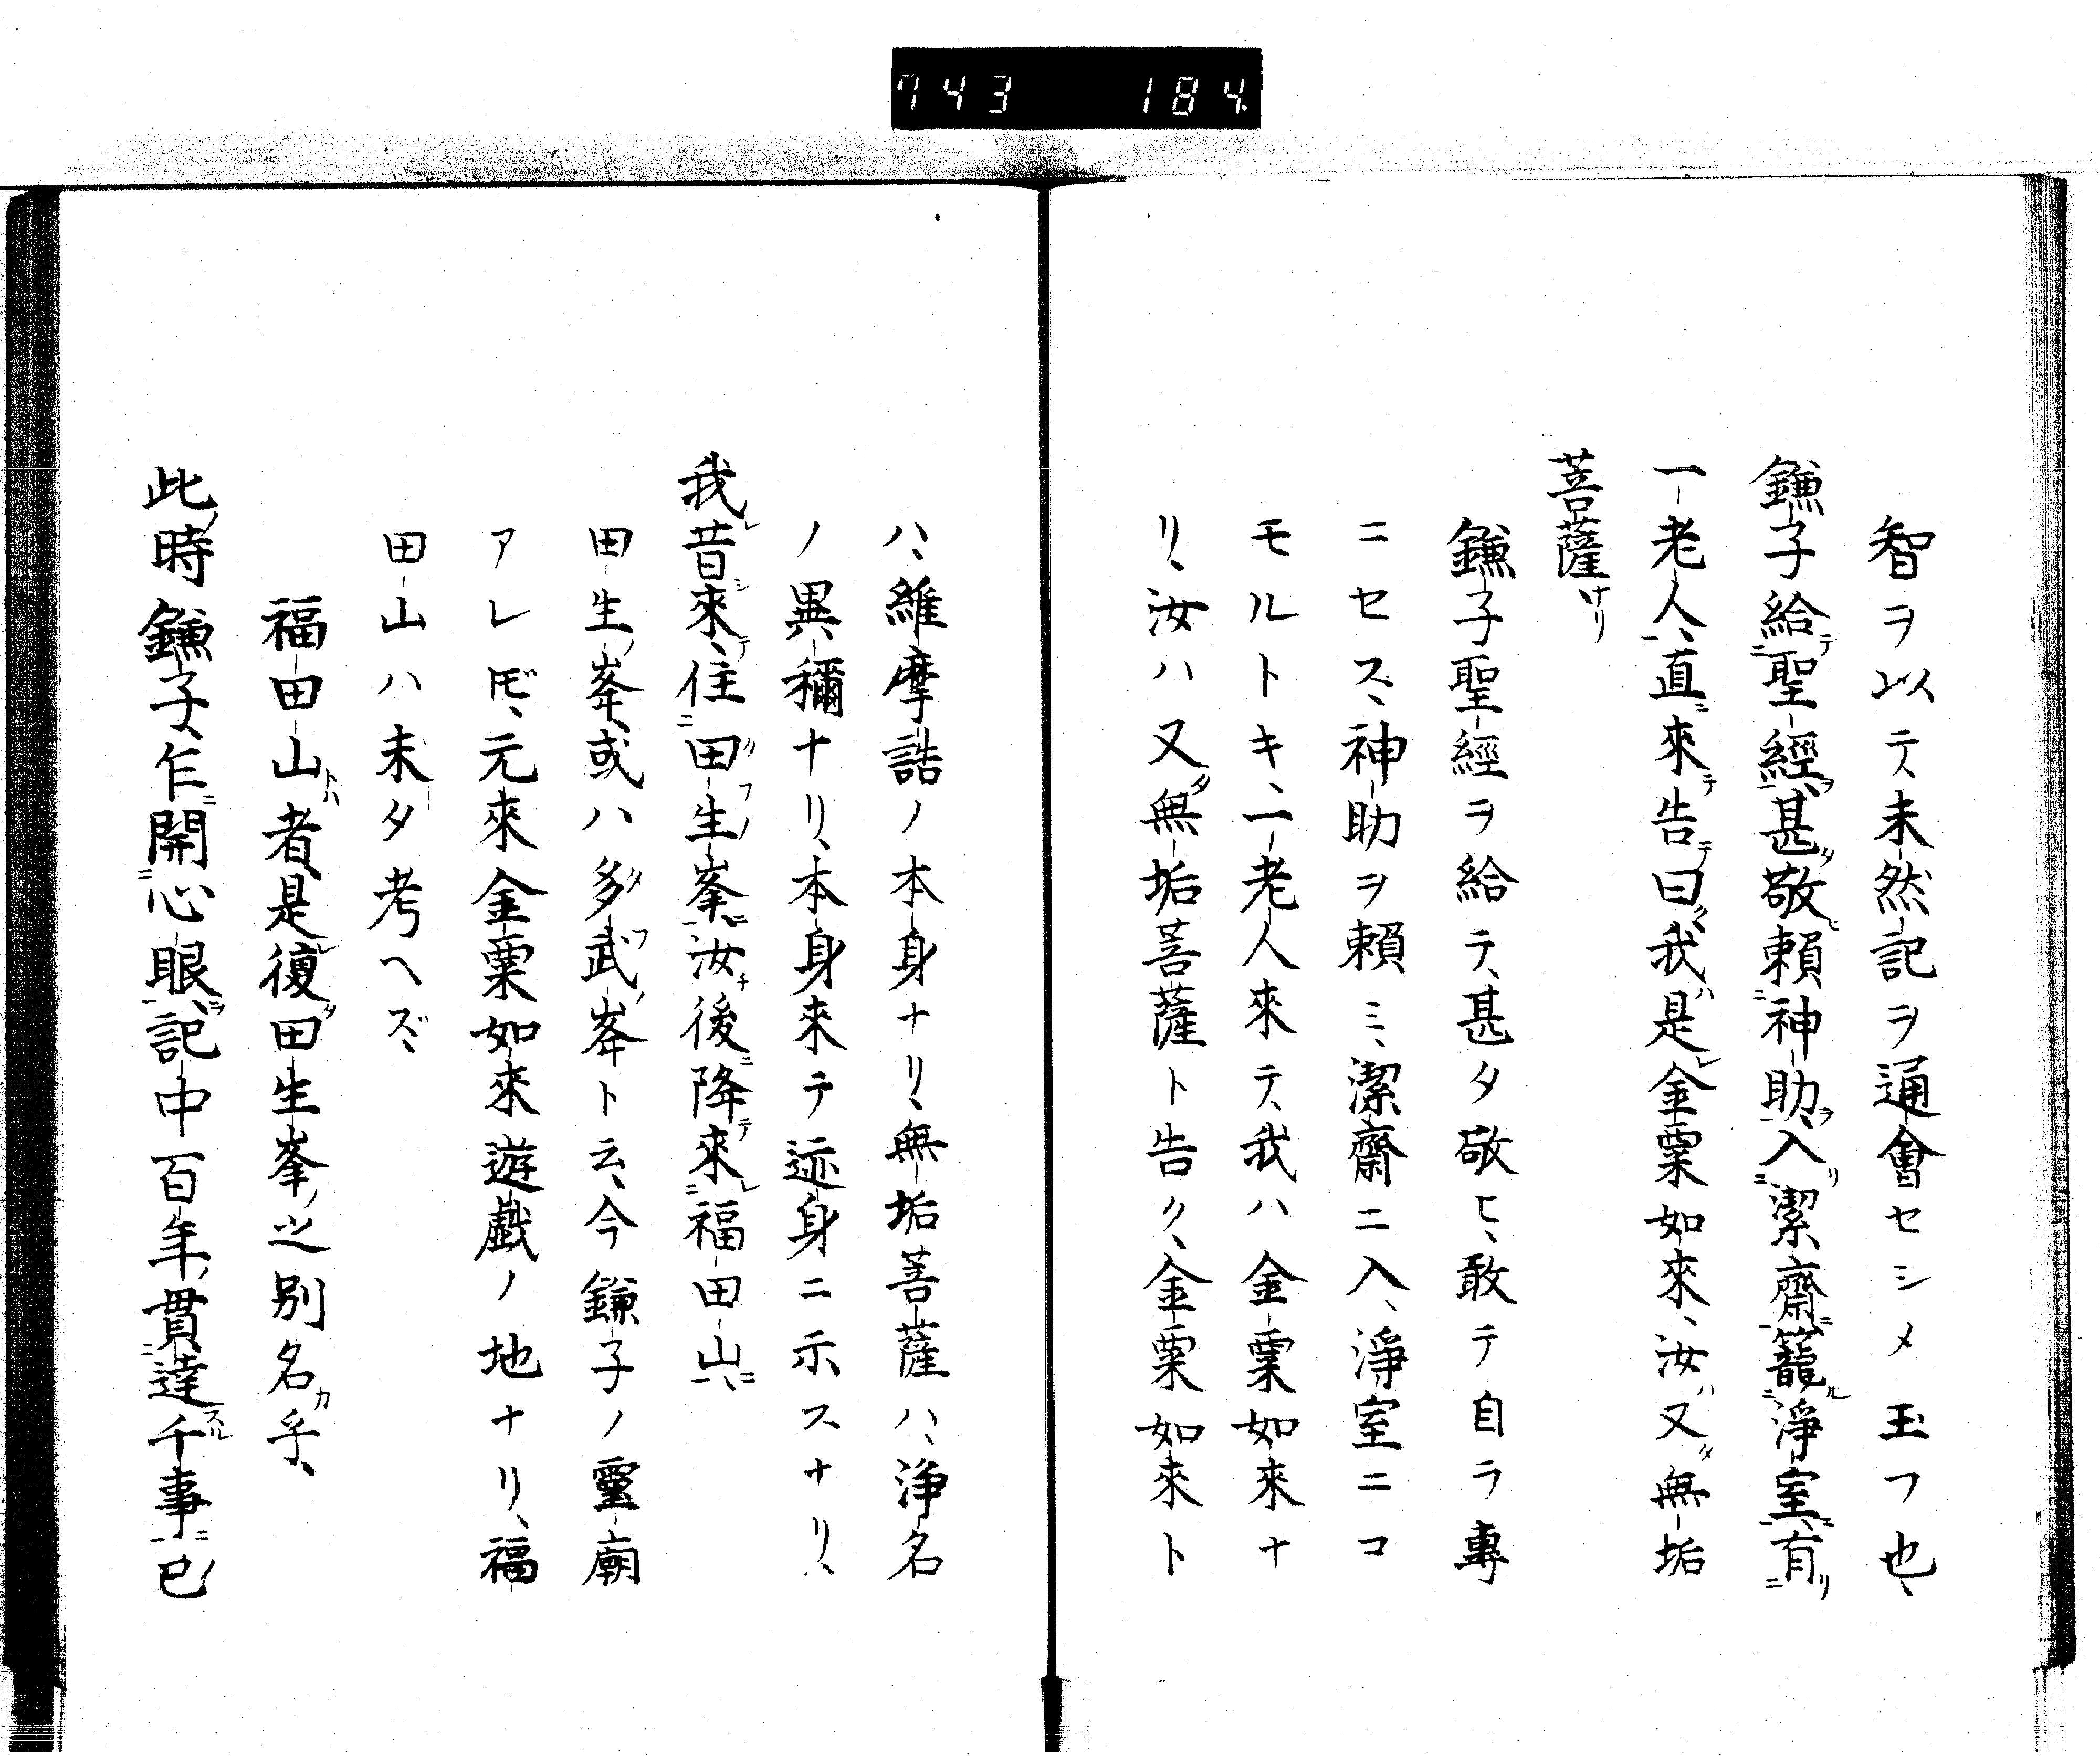 743 184
智ヲ以テ、未然記ヲ通會セシメ玉フ也、
鎌子給聖經、甚敬頼神助、入潔齋、籠淨室、有
一老人、直來告曰、我是金粟如來、汝又無垢
菩薩ケリ
鎌子聖經ヲ給テ、甚タ敬ヒ、敢テ自ラ專
ニセズ、神助ヲ頼ミ、潔齋ニ入、淨室ニコ
モルトキ、一老人來テ、我ハ金粟如來ナ
リ、汝ハ又無垢菩薩ト告ク、金粟如來ト
ハ、維摩詰ノ本身ナリ、無垢菩薩ハ、淨名
ノ異稱ナリ、本身来テ迹身ニ示スナリ、
我昔來、住田生峯、汝後降來福田山、
田生峯、或ハ多武峯ト云、今鎌子ノ靈廟
アレドモ、元來金粟如來遊戯ノ地ナリ、福
田山ハ未タ考ヘズ
福田山者、是復田生峯之別名乎、
此時鎌子、乍開心眼、記中百年、貫達千事已